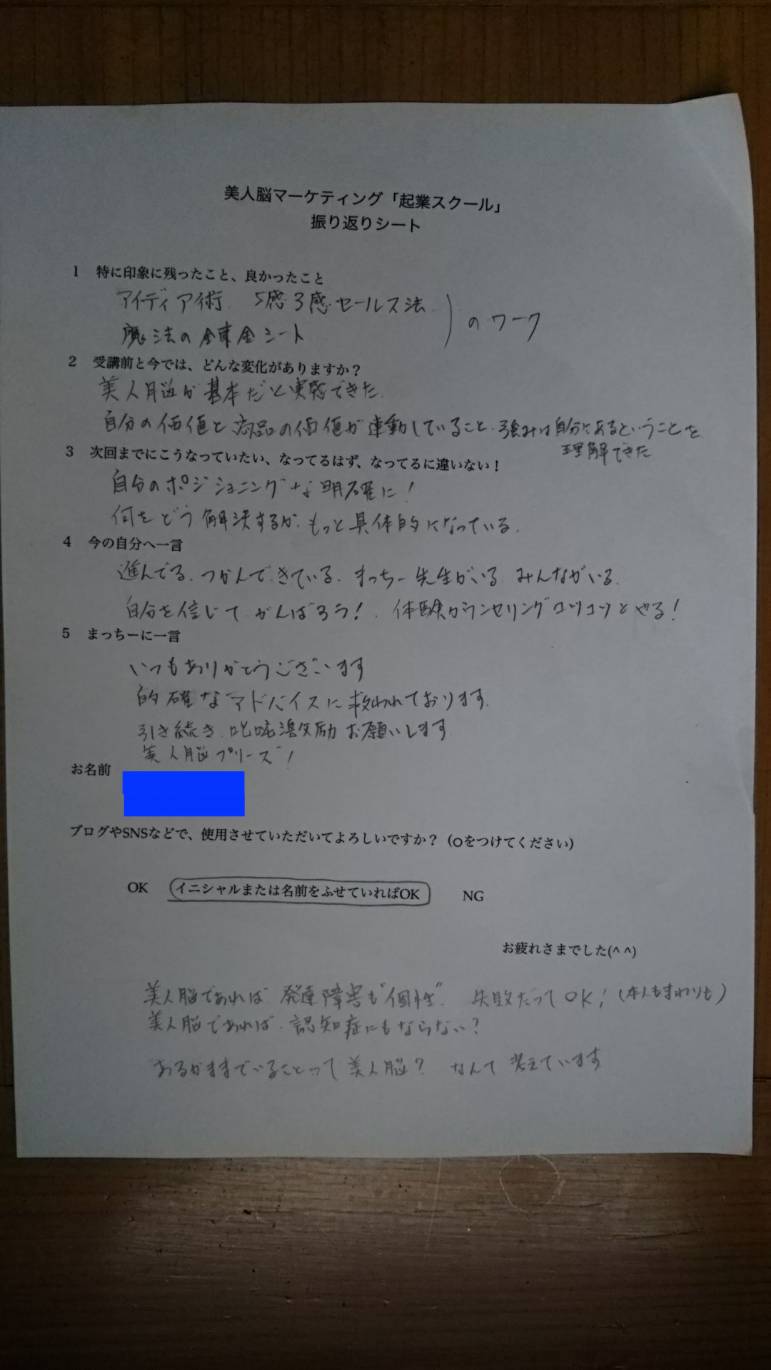 美人脳マーケティング「起業スクール」
振り返りシート
1 特に印象に残ったこと、良かったこと
アイディア術 5感3感セールス法
魔法の錬金シート
)のワーク
2 受講前と今では、どんな変化がありますか?
美人脳が基本だと実感できた
自分の価値と商品の価値が連動していること、強みは自分にあるということを
理解できた
3 次回までにこうなっていたい、なってるはず、なってるに違いない!
自分のポジショニングが明確に!
何をどう解決するか、もっと具体的になっている。
4 今の自分へ一言
進んでる、つかんできている、まっちー先生がいる、みんながいる
自分を信じてがんばろう!体験カウンセリングコツコツとやる!
5 まっちーに一言
いつもありがとうございます
的確なアドバイスに救われております。
引き続き、叱咤激励お願いします
美人脳プリーズ!
お名前
ブログやSNSなどで、使用させていただいてよろしいですか?(○をつけてください)
OK イニシャルまたは名前をふせていればOK NG
お疲れさまでした(^ ^)
美人脳であれば 発達障害も"個性" 失敗だってOK!(本人もまわりも)
美人脳であれば、認知症にもならない?
あるがままでいることって美人脳? なんて考えています